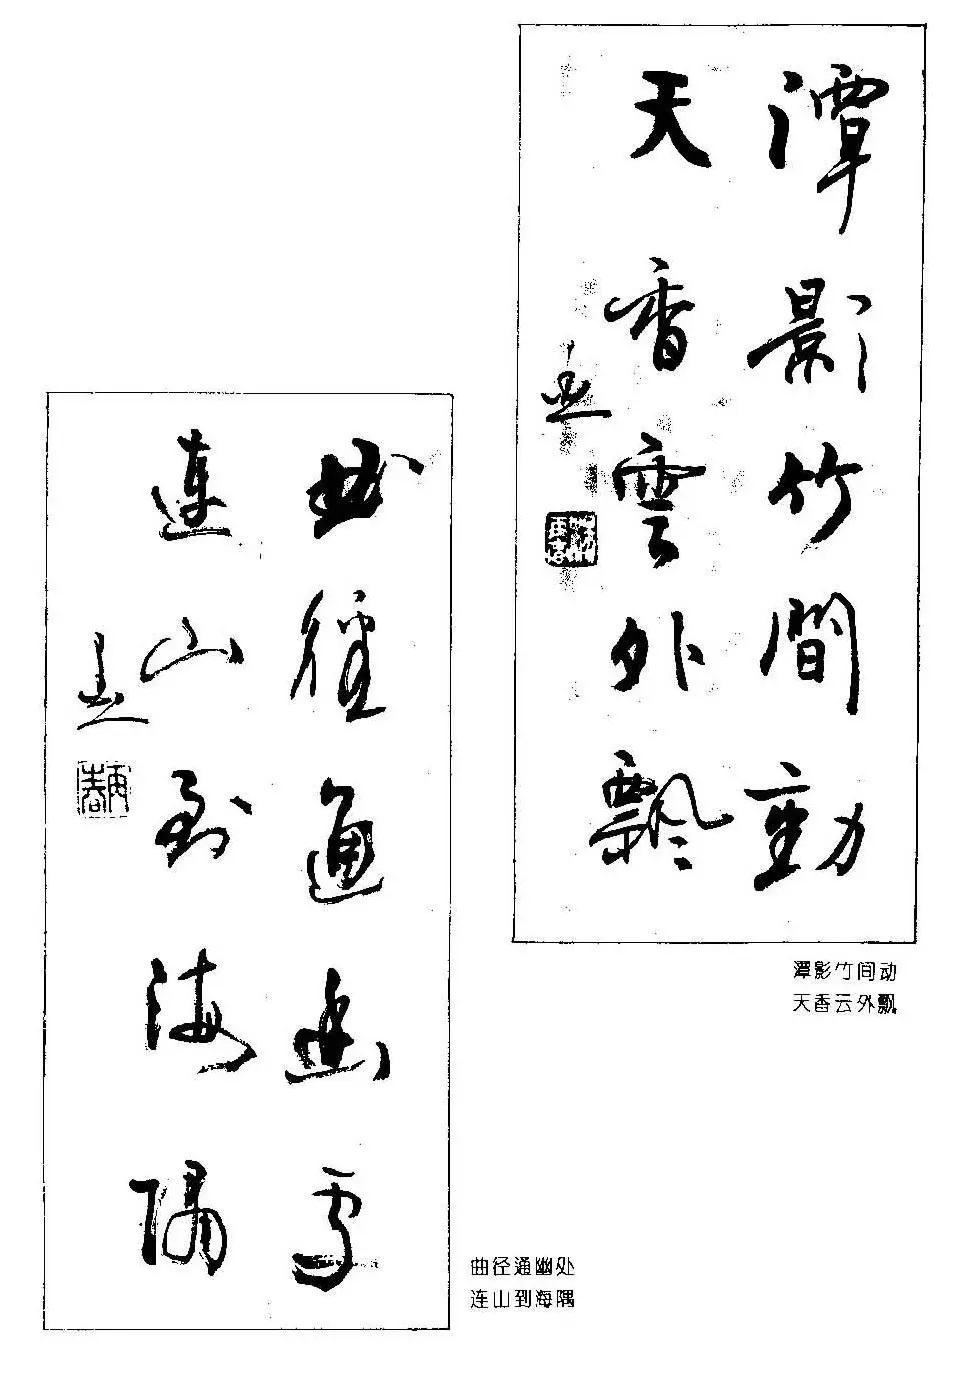 潭影竹間動
天香雲外飄
潭影竹间动
天香云外飘
曲徑通幽處
連山到海隅
曲径通幽处
连山到海隅